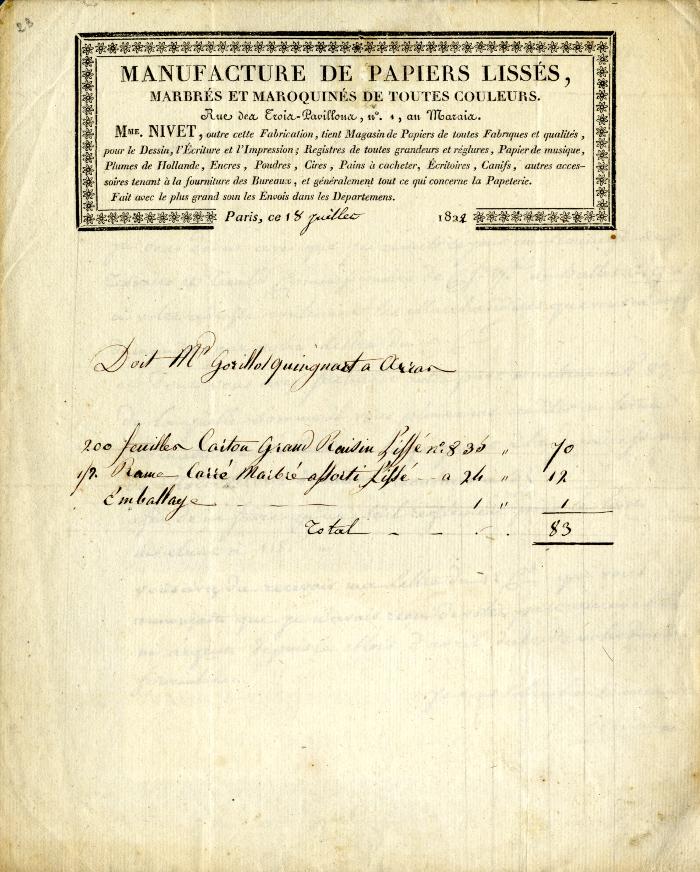 23
MANUFACTURE DE PAPIERS LISSÉS,
MARBRÉS ET MAROQUINÉS DE TOUTES COULEURS.
Rue des Trois-Pavillons, nº. 1, au Marais.
MME. NIVET, outre cette Fabrication, tient Magasin de Papiers de toutes Fabriques et qualités,
pour le Dessin, l'Écriture et l'Impression; Registres de toutes grandeurs et réglures, Papier de musique,
Plumes de Hollande, Encres, Poudres, Cires, Pains à cacheter, Écritoires, Canifs, autres acces-
soires tenant à la fourniture des Bureaux, et généralement tout ce qui concerne la Papeterie.
Fait avec le plus grand soin les Envois dans les Departemens.
Paris, ce 18 juillet 1822
Doit Mr a Arras
200 feuilles Carton Grand Raisin Lissé nº. 8 35 " 70
1/2 Rame Carré Marbré assorti Lissé a 24 " 12
Emballage 1 " 1
Total 83